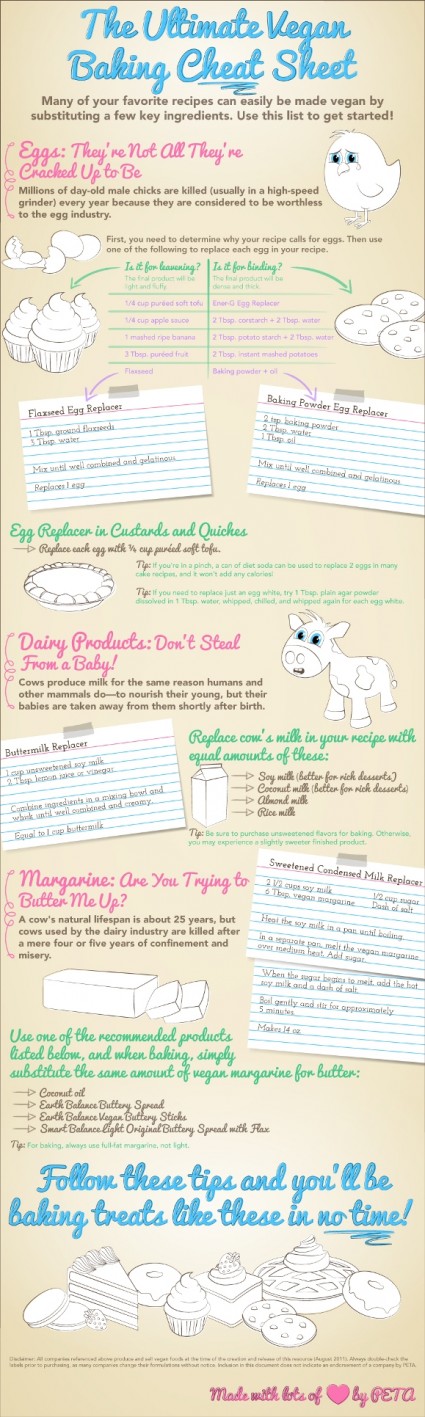 The Ultimate Vegan
Baking Cheat Sheet
Many of your favorite recipes can easily be made vegan by
substituting a few key ingredients. Use this list to get started!
Eggs: They're Not All They're
Cracked Up to Be
Millions of day-old male chicks are killed (usually in a high-speed
grinder) every year because they are considered to be worthless
to the egg industry.
First, you need to determine why your recipe calls for eggs. Then use
one of the following to replace each egg in your recipe.
Is it for leavening? Is it for binding?
The final product will be light and fluffy The final product will be dense and thick.
1/4 cup puréed soft tofu Ener-G Egg Replacer
1/4 cup apple sauce 2 Tbsp. cornstarch + 2 Tbsp. water
1 mashed ripe banana 2 Tbsp. potato starch + 2 Tbsp. water
3 Tbsp. puréed fruit 2 Tbsp. instant mashed potatoes
Flaxseed Baking powder + oil
Flaxseed Egg Replacer
1 Tbsp. ground flaxseeds
3 Tbsp. water
Mix until well combined and gelatinous
Replaces 1 egg
Baking Powder Egg Replacer
2 tsp. baking powder
2 Tbsp. water
1 Tbsp. oil
Mix until well combined and gelatinous
Replaces 1 egg
Egg Replacer in Custards and Quiches
Replace each egg with ¼ cup puréed soft tofu.
Tip: If you're in a pinch, a can of diet soda can be used to replace 2 eggs in many
cake recipes, and it won't add any calories!
Tip: If you need to replace just an egg white, try 1 Tbsp. plain agar powder
dissolved in 1 Tbsp. water, whipped, chilled, and whipped again for each egg white.
Dairy Products: Don't Steal
From a Baby!
Cows produce milk for the same reason humans and
other mammals do—to nourish their young, but their
babies are taken away from them shortly after birth.
Buttermilk Replacer
1 cup unsweetened soy milk
2 Tbsp. lemon juice or vinegar
Combine ingredients in a mixing bowl and
whisk until well combined and creamy.
Equal to 1 cup buttermilk
Replace cow's milk in your recipe with
equal amounts of these:
Soy milk (better for rich desserts)
Coconut milk (better for rich desserts)
Almond milk
Rice milk
Tip: Be sure to purchase unsweetened flavors for baking. Otherwise,
you may experience a slightly sweeter finished product.
Margarine: Are You Trying to
Butter Me Up?
A cow's natural lifespan is about 25 years, but
cows used by the dairy industry are killed after
a mere four or five years of confinement and
misery.
Sweetened Condensed Milk Replacer
2 1/2 cups soy milk 1/2 cup sugar
6 Tbsp. vegan margarine Dash of salt
Heat the soy milk in a pan until boiling.
In a separate pan, melt the vegan margarine
over medium heat. Add sugar.
When the sugar begins to melt, add the hot
soy milk and a dash of salt.
Boil gently and stir for approximately
5 minutes.
Makes 14 oz.
Use one of the recommended products
listed below, and when baking, simply
substitute the same amount of vegan margarine for butter:
Coconut oil
Earth Balance Buttery Spread
Earth Balance Vegan Buttery Sticks
Smart Balance Light Original Buttery Spread with Flax
Tip: For baking, always use full-fat margarine, not light.
Follow these tips and you'll be
baking treats like these in no time!
Disclaimer: All companies referenced above produce and sell vegan foods at the time of the creation and release of this resource (August 2011). Always double-check the
labels prior to purchasing, as many companies change their formulations without notice. Inclusion in this document does not indicate an endorsement of a company by PETA.
Made with lots of by PETA